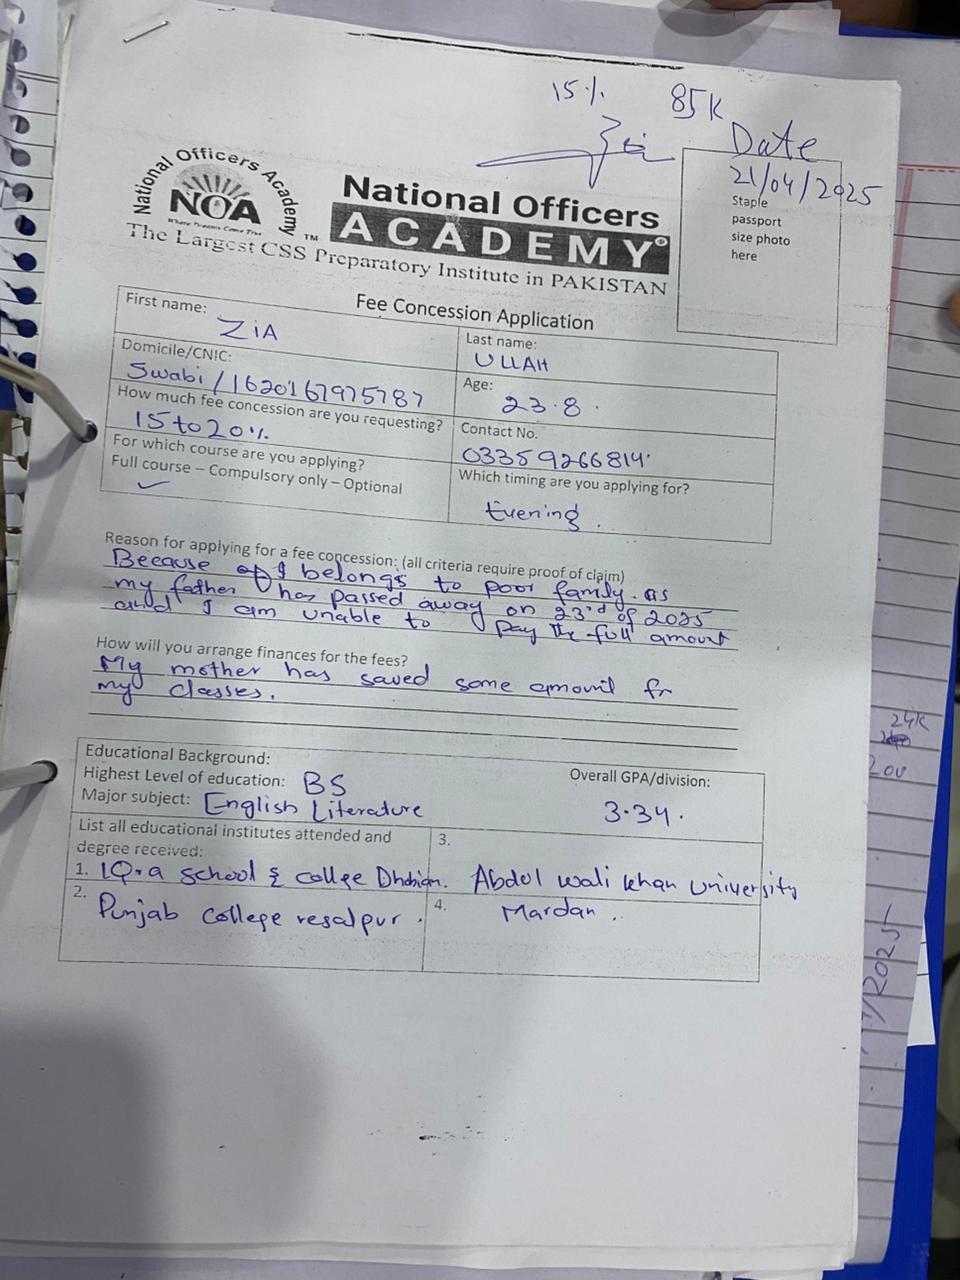 15% 85K
Date
21/04/2025
Staple
passport
size photo
here
National Officers Academy
NOA
Where Dreams Come True
National Officers
ACADEMY
The Largest CSS Preparatory Institute in PAKISTAN
Fee Concession Application
First name: ZiA
Last name: ULLAH
Domicile/CNIC: Swabi / 1620167975787
Age: 23.8.
How much fee concession are you requesting? 15 to 20%
Contact No. 03359266814
For which course are you applying?
Full course – Compulsory only – Optional
Which timing are you applying for?
Evening.
Reason for applying for a fee concession: (all criteria require proof of claim)
Because of I belongs to poor family. as
my father has passed away on 23rd of 2025
and I am unable to pay the full amount
How will you arrange finances for the fees?
My mother has saved some amount fr
my classes.
Educational Background:
Highest Level of education: BS
Overall GPA/division:
Major subject: English Literature
3.34.
List all educational institutes attended and
degree received:
1. IQra school & collge
2. Punjab college resalpur.
3. Abdul wali khan university
4. Mardan.
24K
200